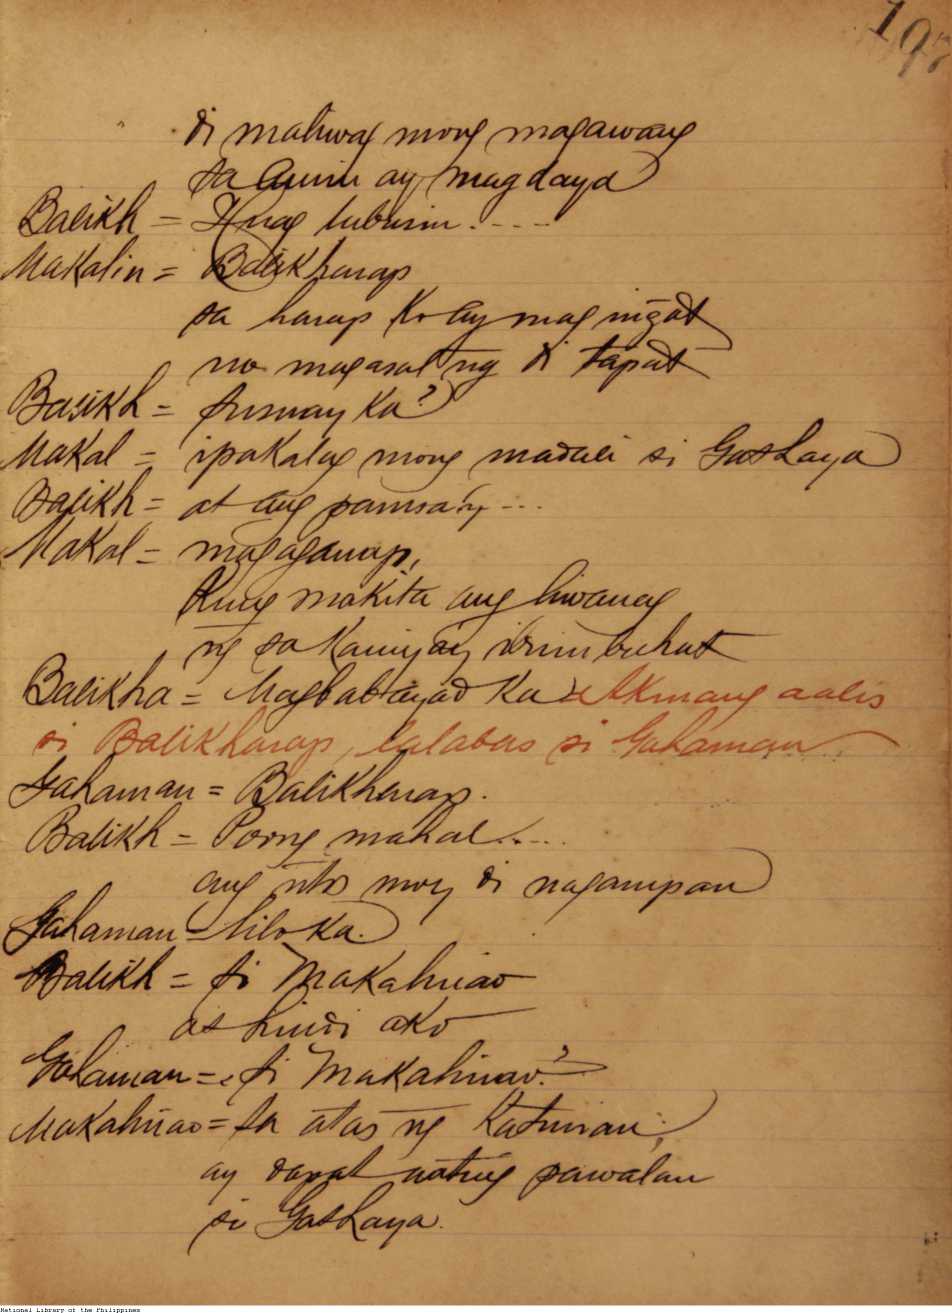 di maliwag mong magawang
sa amin ay magdaya
Balikh = Kung tubusin....
Makalin = Balikharap
sa harap ko ay mag ingat
na magasal ng di tapat
Balikh = sumuay ka?
Makal = ipakalag mong madali si GasLaya
Balikh = at ang pamsa...
Makal = magaganap,
Kung makita ang liwanag
ng sa kaniyay
Balikha = Magbabayad ka Akmang aalis
si Balikharap, lalabas si Gahaman
Gahaman = Balikharap.
Balikh = Poong mahal....
ang utos moy di naganapan
Gahaman = Lilo ka.
Balikh = si Makahiнао
at hindi ako
Gahaman = si Makahinao?
Makahinao = sa atas ng Katuiran;
ay dapat nating pawalan
si GasLaya.
National Library of the Philippines